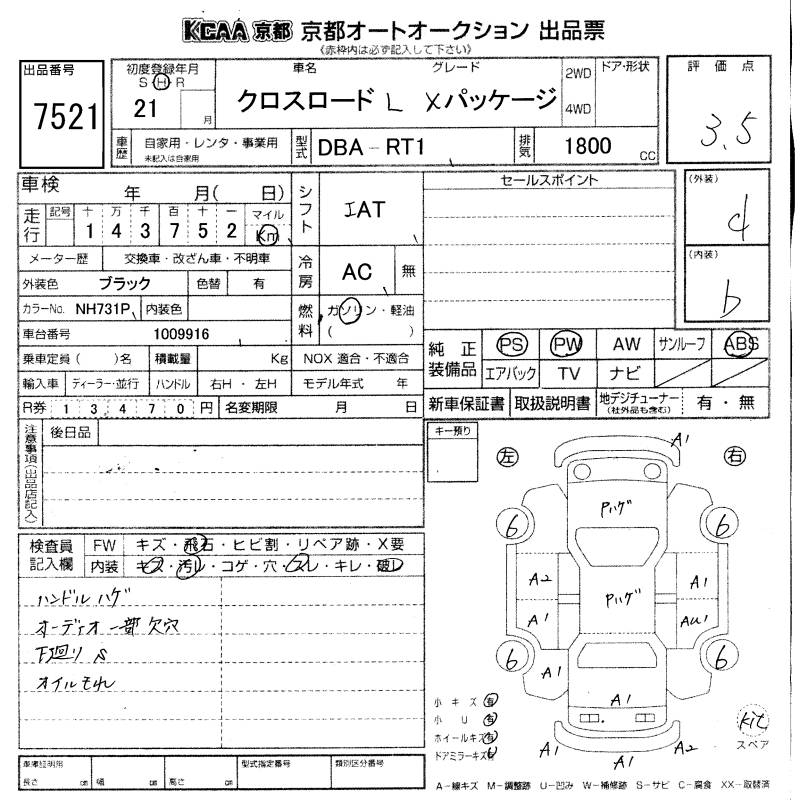 KCAA 京都 京都オートオークション 出品票
《赤枠内は必ず記入して下さい》
出品番号
7521
初度登録年月
S H R
21
月
車名
グレード
クロスロード L Xパッケージ
2WD
4WD
ドア・形状
評価点
3.5
車歴
自家用・レンタ・事業用
未記入は自家用
型式
DBA-RT1
排気
1800 CC
車検 年 月( 日)
走行
記号
十 万 千 百 十 一
1 4 3 7 5 2
マイル
Km
シフト
IAT
セールスポイント
(外装)
d
(内装)
b
メーター歴 交換車・改ざん車・不明車
冷房
AC 無
外装色 ブラック 色替 有
カラーNo. NH731P 内装色
燃料
ガソリン・軽油
( )
車台番号 1009916
乗車定員( )名 積載量 Kg NOX 適合・不適合
輸入車 ディーラー・並行 ハンドル 右H・左H モデル年式 年
R券 13,470円 名変期限 月 日
純正装備品
PS PW AW サンルーフ ABS
エアバック TV ナビ
新車保証書 取扱説明書 地デジチューナー (社外品も含む) 有・無
注意事項(出品店記入)
後日品
キー預り
検査員記入欄
FW キズ・飛石・ヒビ割・リペア跡・X要
内装 キズ・汚レ・コゲ・穴・スレ・キレ・破レ
ハンドル ハゲ
オーディオ 一部 欠穴
下廻り S
オイルもれ
左 右
A1
Pハゲ
6 6
A2 A1
Pハゲ
A1 AU1
6 6
A1 A1
A1
小キズ 有
小U 有
ホイールキズ 有
ドアミラーキズ 有
A1 A1 A2
kit
スペア
車庫証明用
長さ cm 幅 cm 高さ cm
型式指定番号
類別区分番号
A-線キズ M-調整跡 U-凹み W-補修跡 S-サビ C-腐食 XX-取替済